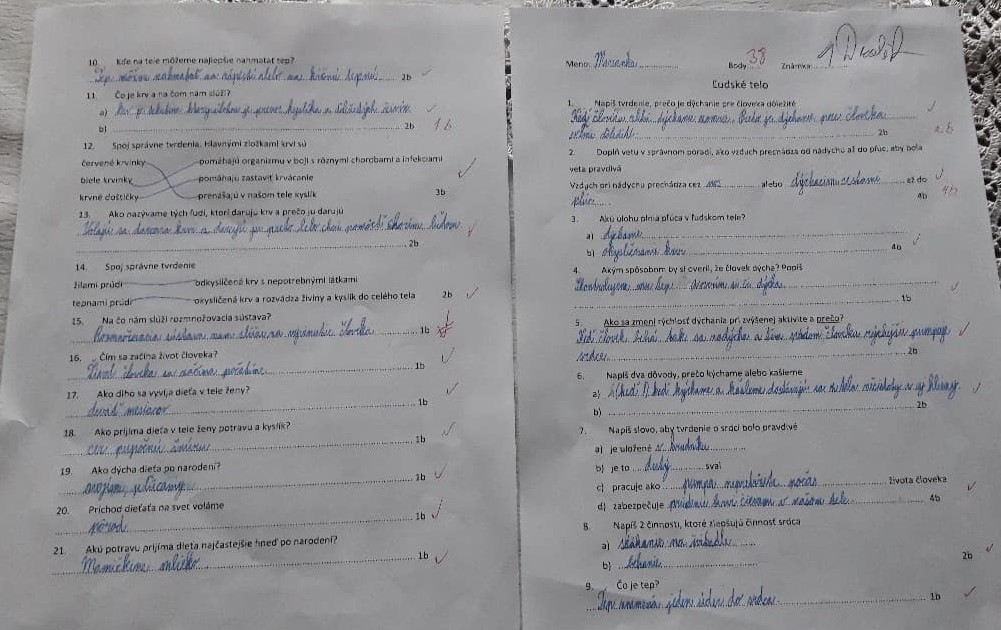 Meno: Marianka Body 38 Známka:
Ľudské telo
1. Napíš tvrdenie, prečo je dýchanie pre človeka dôležité
2b
2. Doplň vetu v správnom poradí, ako vzduch prechádza od nádychu až do pľúc, aby bola
veta pravdivá
Vzduch pri nádychu prechádza cez nos alebo dýchacimi cestami až do
pľúc 4b
3. Akú úlohu plnia pľúca v ľudskom tele?
a) dýchame
b) okysličujeme krv 4b
4. Akým spôsobom by si overil, že človek dýcha? Popíš
1b
5. Ako sa zmení rýchlosť dýchania pri zvýšenej aktivite a prečo?
srdce 2b
6. Napíš dva dôvody, prečo kýchame alebo kašleme
a) keď kýchame a kašleme dostávajú sa z tela
b) 2b
7. Napíš slovo, aby tvrdenie o srdci bolo pravdivé
a) je uložené v hrudníku
b) je to dutý sval
c) pracuje ako pumpa života človeka
d) zabezpečuje prúdenie krvi v našom tele 4b
8. Napíš 2 činnosti, ktoré zlepšujú činnosť srdca
a) skákanie na švihadle
b) behanie 2b
9. Čo je tep?
Tep znamená jeden úder do srdca 1b
10. Kde na tele môžeme najlepšie nahmatať tep?
Tep môžeme nahmatať na zápästí alebo na krčnej tepne 2b
11. Čo je krv a na čom nám slúži?
a) Krv je tekutina
b) 2b 1b
12. Spoj správne tvrdenia. Hlavnými zložkami krvi sú
červené krvinky pomáhajú organizmu v boji s rôznymi chorobami a infekciami
biele krvinky pomáhajú zastaviť krvácanie
krvné doštičky prenášajú v našom tele kyslík 3b
13. Ako nazývame tých ľudí, ktorí darujú krv a prečo ju darujú
Volajú sa darcovia krvi a darujú ju preto lebo chcú pomôcť chorým ľuďom
2b
14. Spoj správne tvrdenie
žilami prúdi odkysličená krv s nepotrebnými látkami
tepnami prúdi okysličená krv a rozvádza živiny a kyslík do celého tela 2b
15. Na čo nám slúži rozmnožovacia sústava?
Rozmnožovacia sústava nám slúži na človeka 1b
16. Čím sa začína život človeka?
Život človeka sa začína počatím 1b
17. Ako dlho sa vyvíja dieťa v tele ženy?
deväť mesiacov 1b
18. Ako prijíma dieťa v tele ženy potravu a kyslík?
cez pupočnú šnúru 1b
19. Ako dýcha dieťa po narodení?
svojimi pľúcami 1b
20. Príchod dieťaťa na svet voláme
pôrod 1b
21. Akú potravu prijíma dieťa najčastejšie hneď po narodení?
Mamičkine mlieko 1b